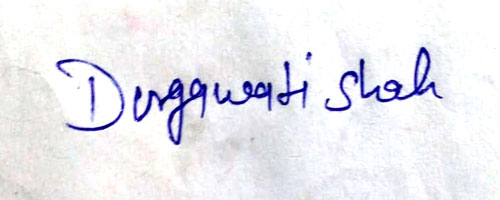 Durgawati Shah